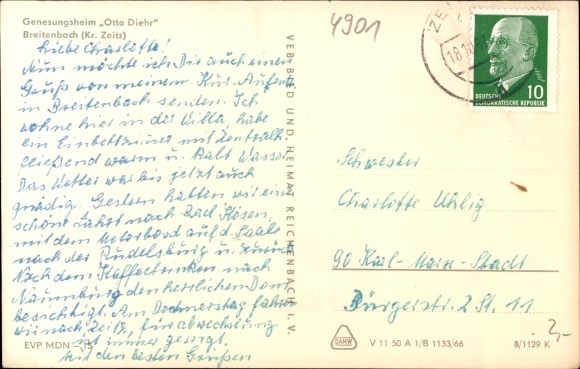 Genesungsheim „Otto Diehr"
Breitenbach (Kr. Zeitz)
4901
Liebe Charlotte!
Nun möchte ich Dir auch einen
Gruß von meinem Kur-Aufenth.
in Breitenbach senden. Ich
wohne hier in der Villa, habe
ein Einbettzimmer mit Zentralh.
fließend warm u. kalt Wasser.
Das Wetter war bis jetzt auch
gnädig. Gestern hatten wir eine
schöne Fahrt nach Bad Kösen,
mit dem Motorboot auf d. Saale
nach der Rudelsburg u. zurück
Nach dem Kaffeetrinken nach
Naumburg den herrlichen Dom
besichtigt. Am Donnerstag fahren
wir nach Zeitz, für Abwechslung
ist immer gesorgt.
Mit den besten Grüßen
EVP MDN
VEB BILD UND HEIMAT REICHENBACH I. V.
DEUTSCHE
DEMOKRATISCHE REPUBLIK
10
Schwester
Charlotte Uhlig
90 Karl-Marx-Stadt
Bürgerstr. 2 St. 11
2,-
GAHW
V 11 50 A 1/B 1133/66
8/1129 K